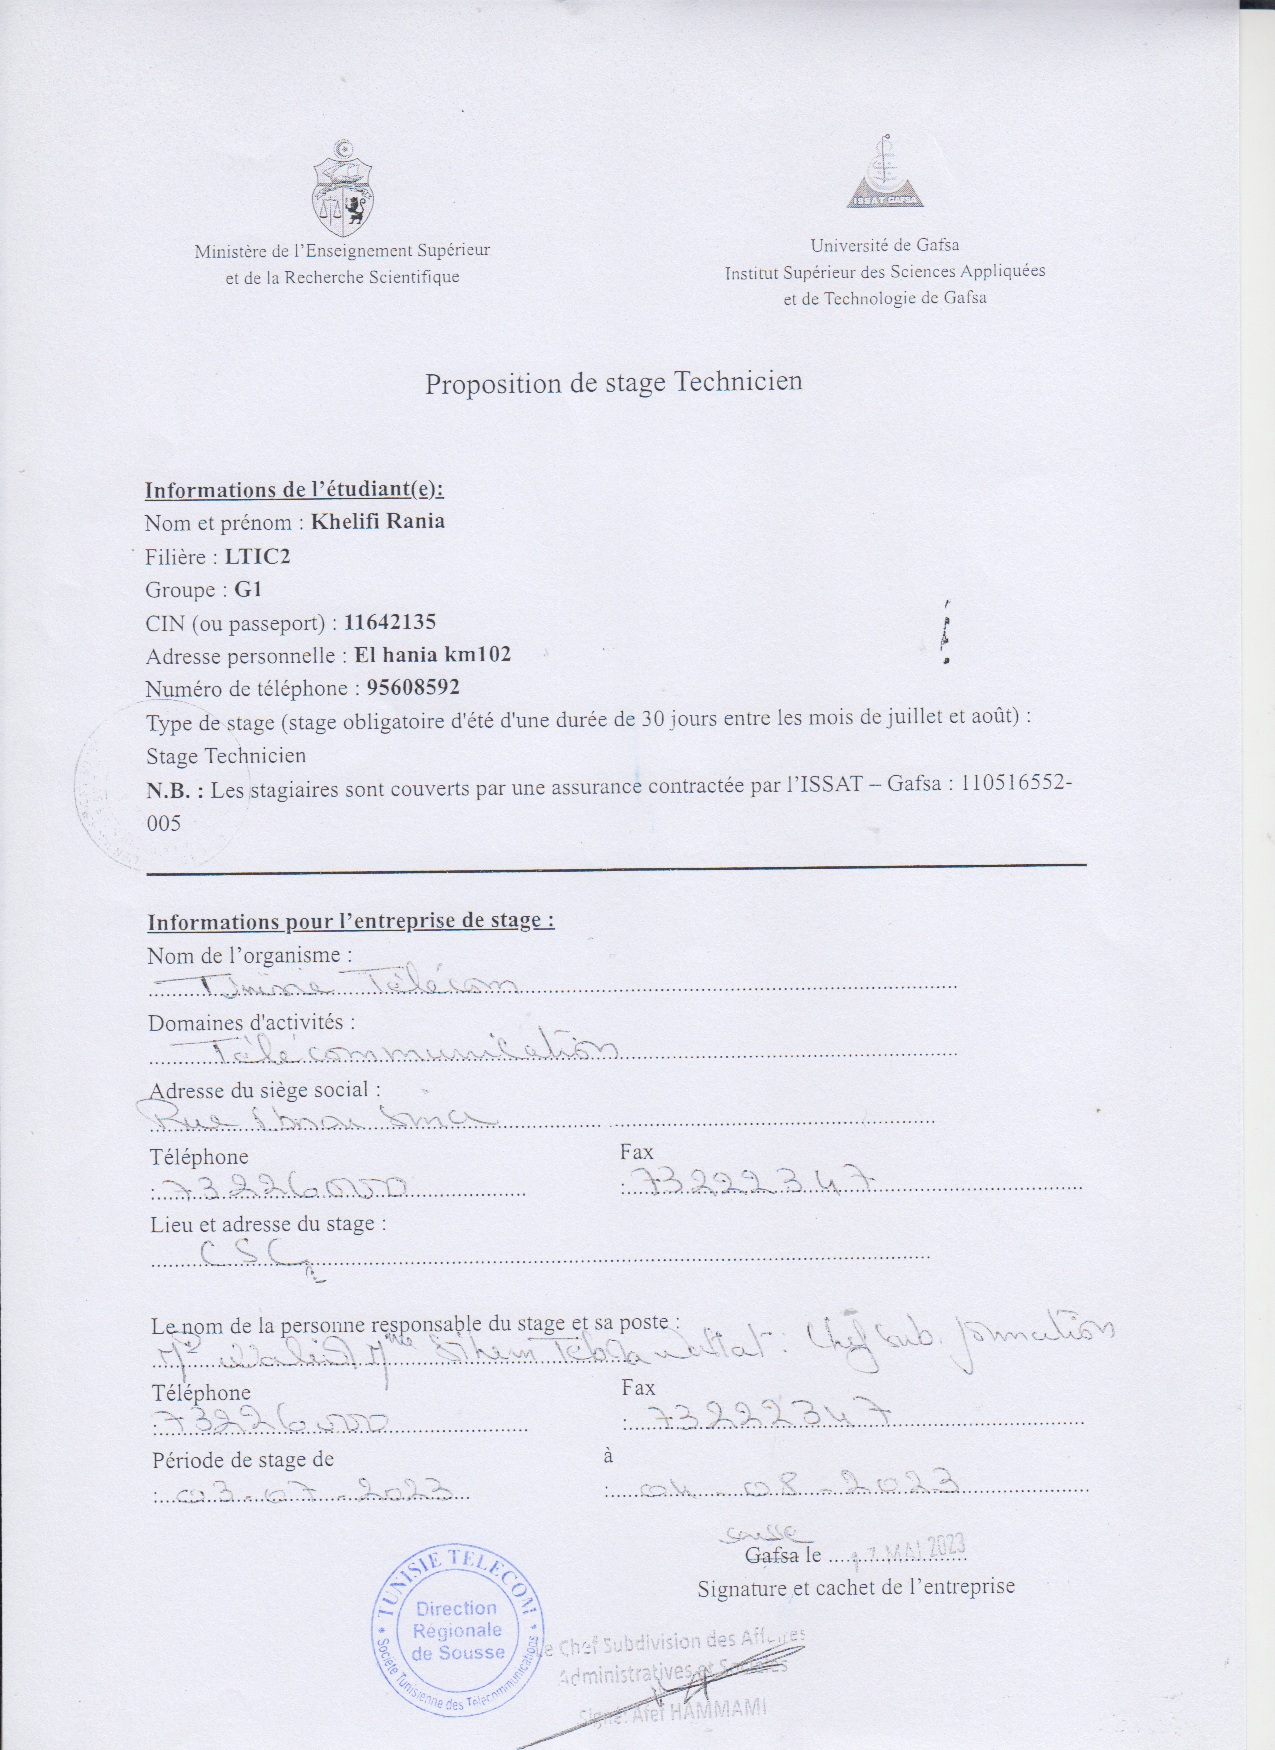 Ministère de l'Enseignement Supérieur
et de la Recherche Scientifique
ISSAT GAFSA
Université de Gafsa
Institut Supérieur des Sciences Appliquées
et de Technologie de Gafsa
Proposition de stage Technicien
Informations de l'étudiant(e):
Nom et prénom : Khelifi Rania
Filière : LTIC2
Groupe : G1
CIN (ou passeport) : 11642135
Adresse personnelle : El hania km102
Numéro de téléphone : 95608592
Type de stage (stage obligatoire d'été d'une durée de 30 jours entre les mois de juillet et août) :
Stage Technicien
N.B. : Les stagiaires sont couverts par une assurance contractée par l'ISSAT – Gafsa : 110516552-
005
Informations pour l'entreprise de stage :
Nom de l'organisme :
Tunisie Télécom
Domaines d'activités :
Télécommunication
Adresse du siège social :
Rue Sina
Téléphone Fax
: 73226000 : 73222347
Lieu et adresse du stage :
CSC
Le nom de la personne responsable du stage et sa poste :
Mr Walid Mme Sihem : Chef Sub. formation
Téléphone Fax
: 73226000 : 73222347
Période de stage de à
: 03-07-2023 : 04-08-2023
Sousse
Gafsa le 17 MAI 2023
Signature et cachet de l'entreprise
TUNISIE TELECOM
Direction
Régionale
de Sousse
Société Tunisienne des Télécommunications
Le Chef Subdivision des Affaires
Administratives et Sociales
Signé: Afef HAMMAMI